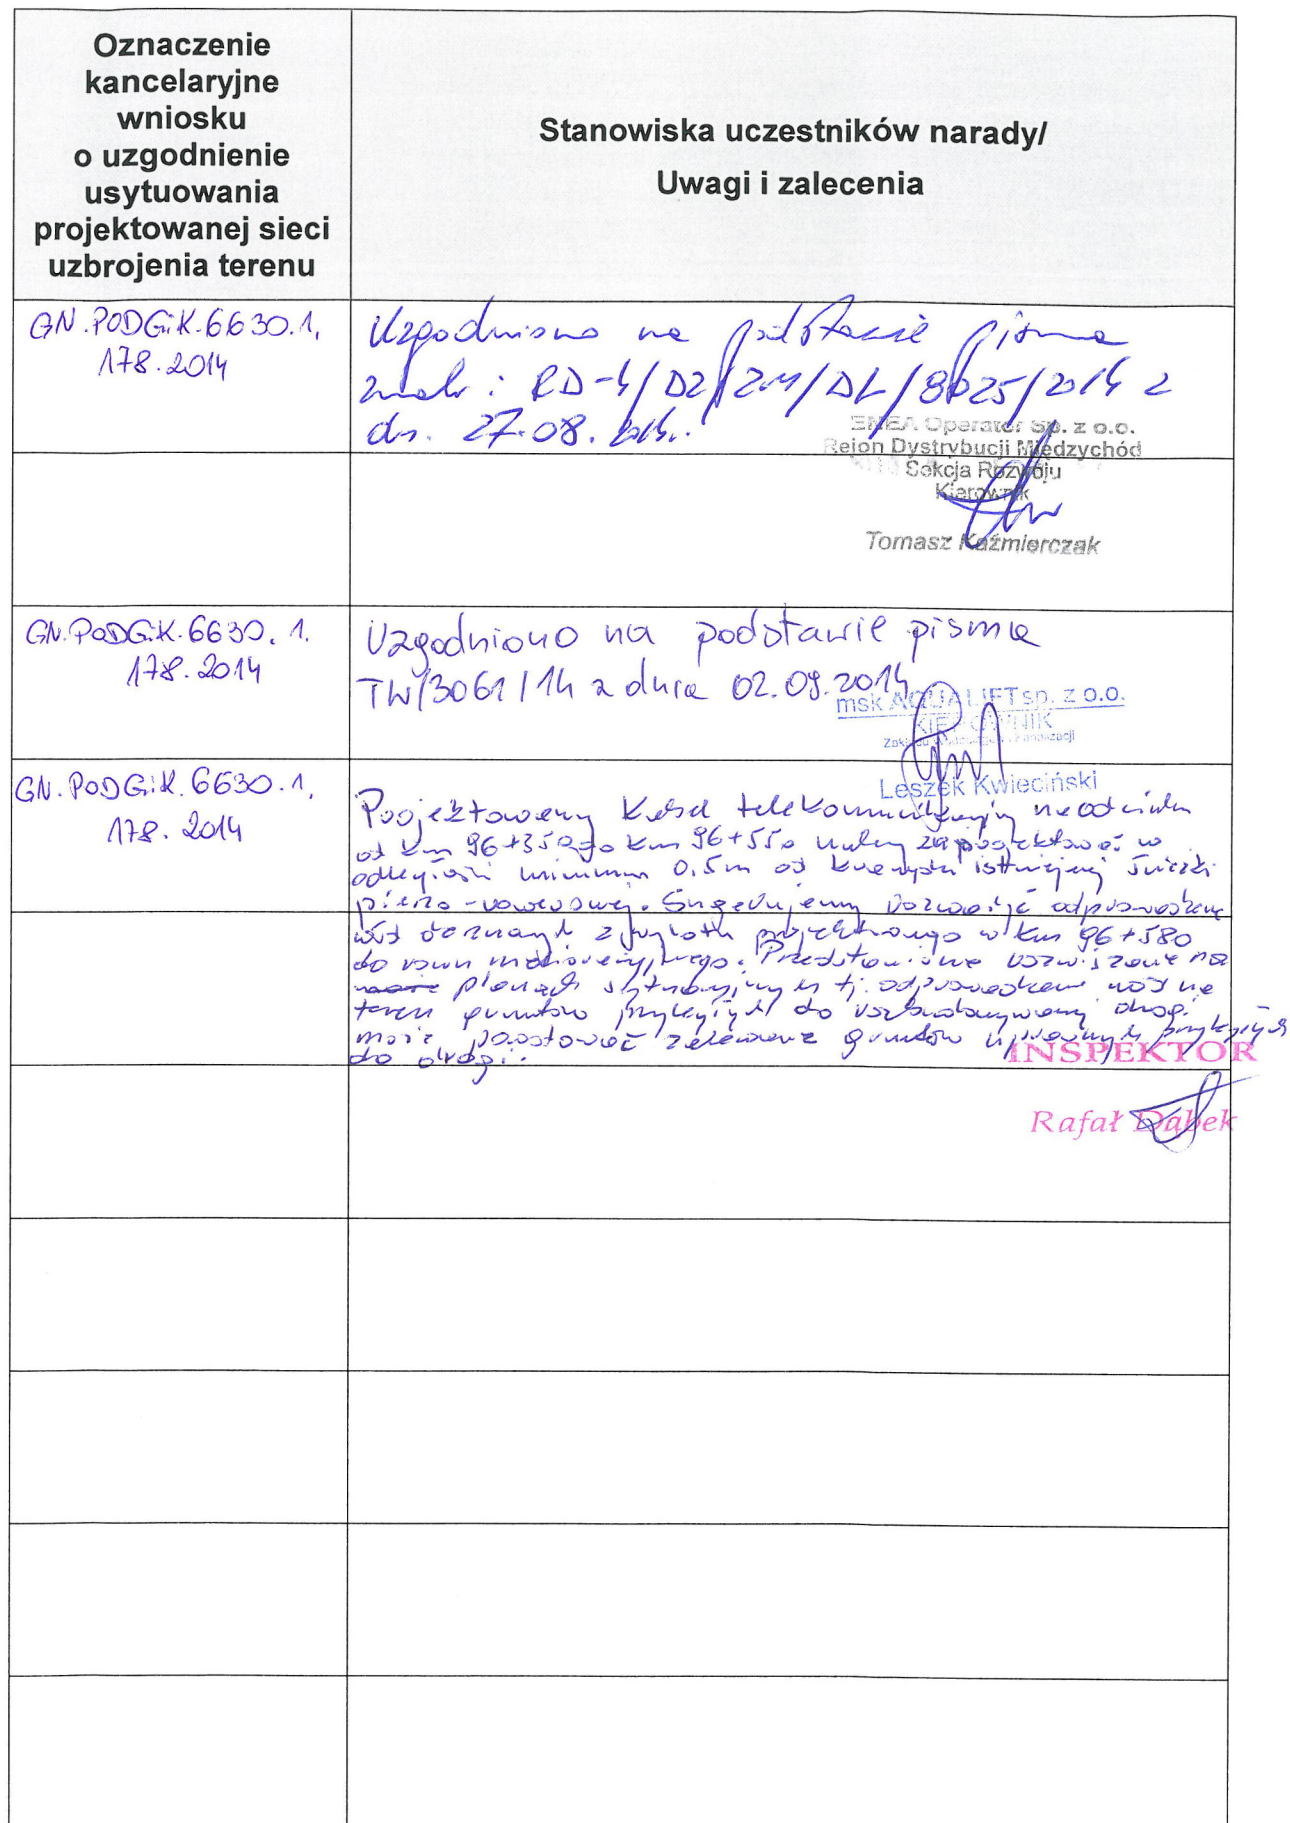 Oznaczenie
kancelaryjne
wniosku
o uzgodnienie
usytuowania
projektowanej sieci
uzbrojenia terenu
Stanowiska uczestników narady/
Uwagi i zalecenia
GN.PODGiK.6630.1.
178.2014
Uzgodniono na podstawie pisma
znak: RD-4/DZ/ZM/DL/8025/2014 z
dn. 27.08.2014.
ENEA Operator Sp. z o.o.
Rejon Dystrybucji Międzychód
Sekcja Rozwoju
Kierownik
Tomasz Kaźmierczak
GN.PODGiK.6630.1.
178.2014
Uzgodniono na podstawie pisma
TW/3061/14 z dnia 02.09.2014
msk AQUALIFT sp. z o.o.
KIEROWNIK
Zakładu Wodociągów i Kanalizacji
Leszek Kwieciński
GN.PODGiK.6630.1.
178.2014
Projektowany kabel telekomunikacyjny na odcinku
od km 96+350 do km 96+550 należy zaprojektować w
odległości minimum 0,5m od krawędzi istniejącej ścieżki
pieszo-rowerowej. Sugerujemy rozważyć odprowadzenie
wód z wylotu projektowanego w km 96+580
do rowu melioracyjnego. Przedstawione rozwiązanie na
planach sytuacyjnych tj. odprowadzenie wód na
teren gruntów przyległych do rozbudowywanej drogi
może powodować zalewanie gruntów uprawnych przyległych
do drogi.
INSPEKTOR
Rafał Dąbek